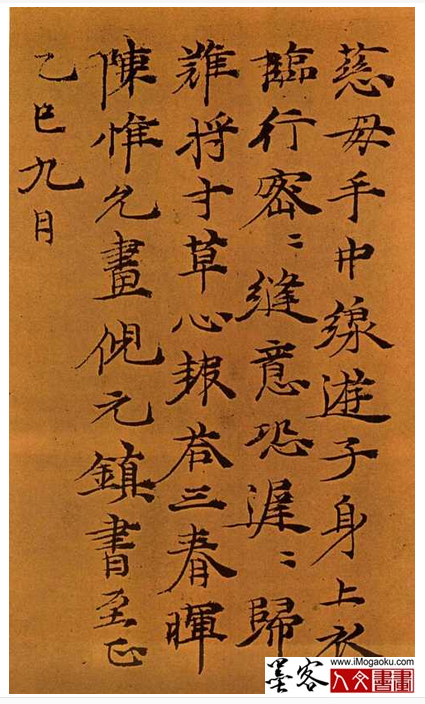 慈母手中線遊子身上衣
臨行密〻縫意恐遲〻歸
難將寸草心報荅三春暉
陳惟允畫倪元鎮書至正
乙巳九月
墨客
www.iMogaoku.com
人文書畫